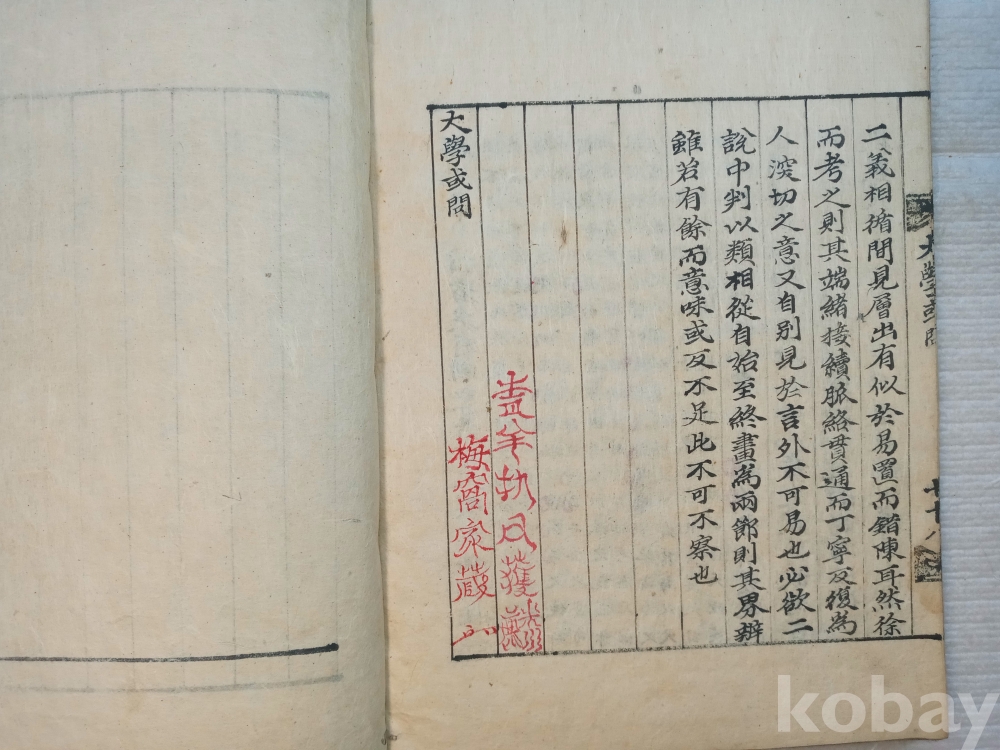 二義相循間見層出有似於易置而錯陳耳然徐
而考之則其端緒接續脈絡貫通而丁寧反復爲
人深切之意又自別見於言外不可易也必欲二
說中判以類相從自始至終畫爲兩節則其界辨
雖若有餘而意味或反不足此不可不察也
大學或問
梅窩家藏
大學或問
kobay